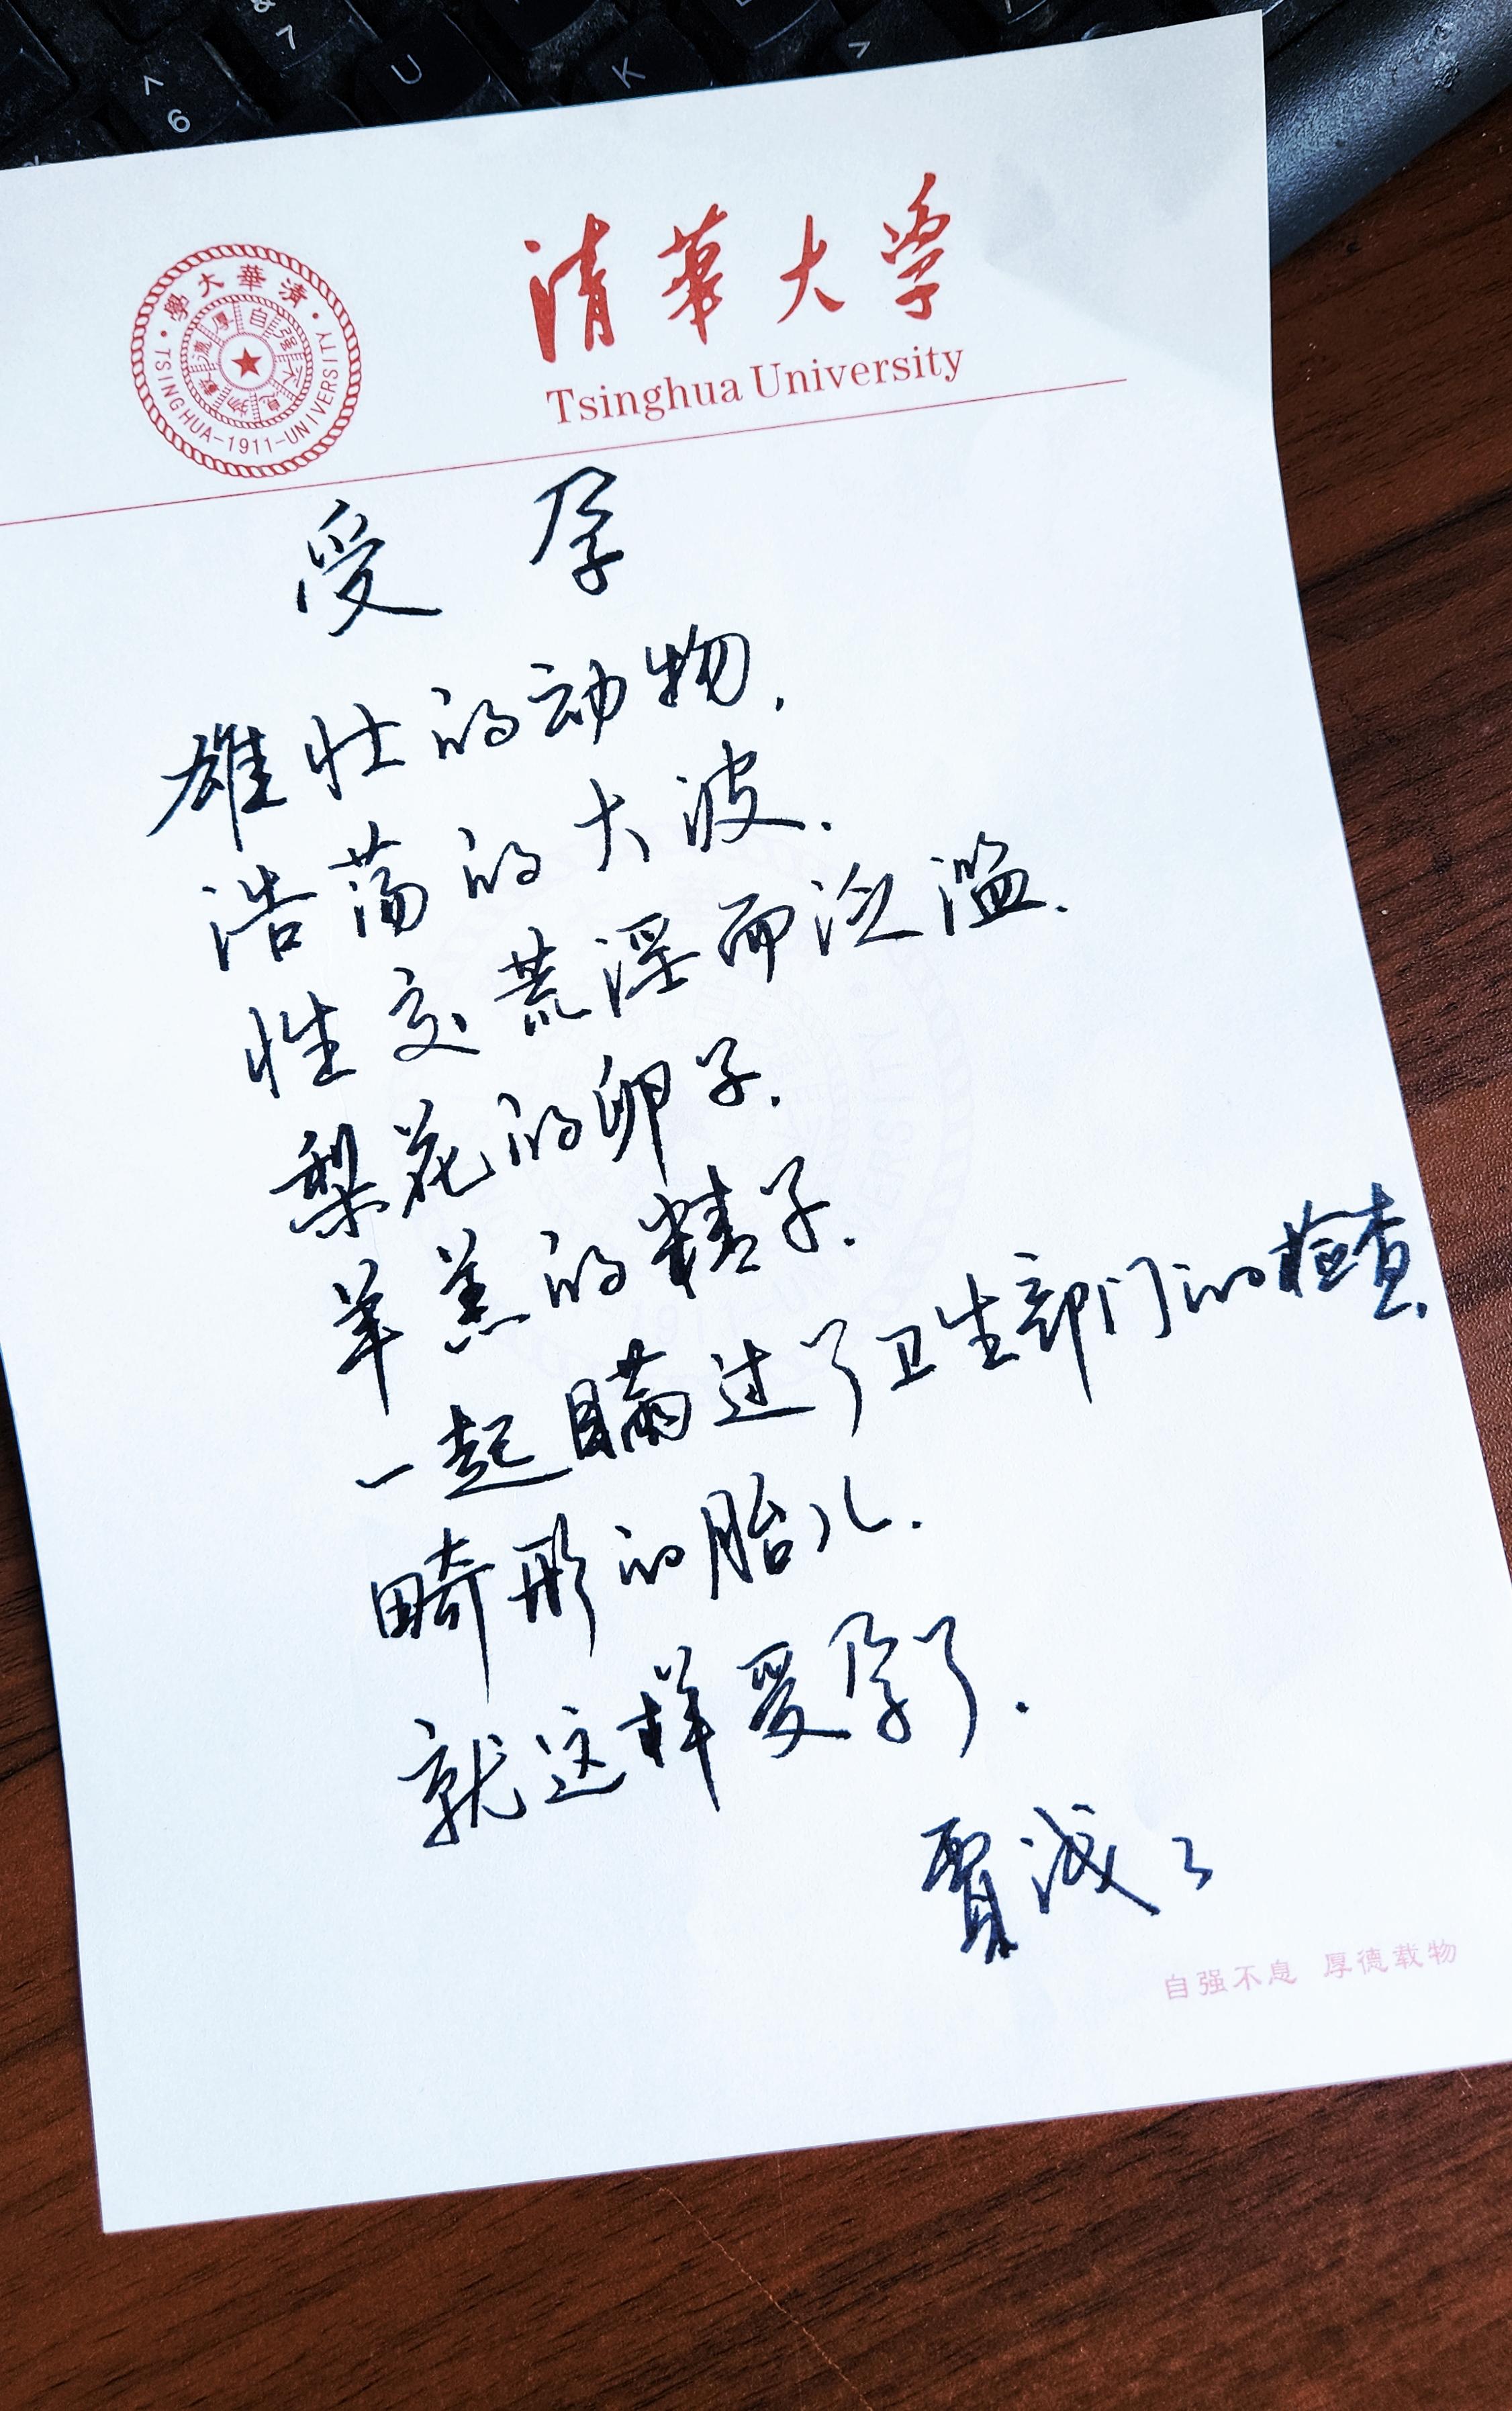 &
7
^
6
U
K
>
清華大学
Tsinghua University
清華大學
自强不息厚德載物
TSINGHUA-1911-UNIVERSITY
受孕
雄壮的动物.
浩荡的大波.
性交荒淫而泛滥.
梨花的卵子.
羊羔的精子.
一起瞒过了卫生部门的检查
畸形的胎儿.
就这样受孕了.
贾浅
自强不息 厚德载物